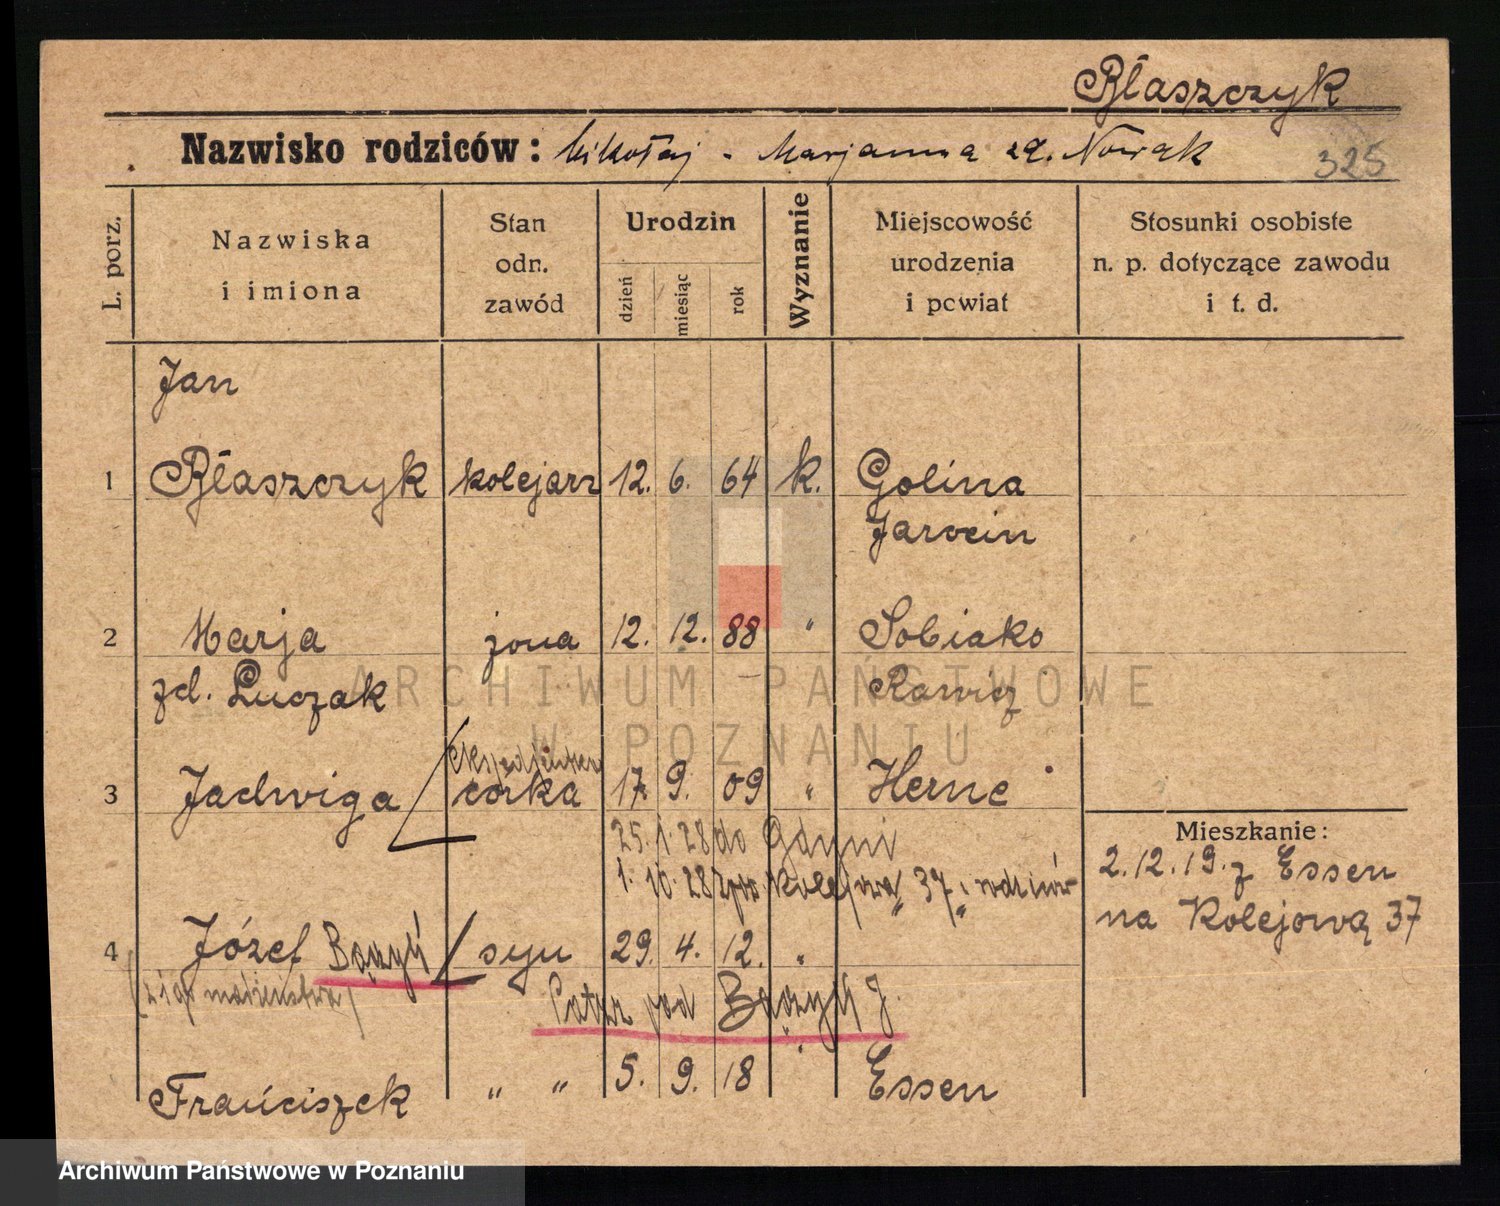 Błaszczyk
Nazwisko rodziców: Mikołaj - Marjanna zd. Nowak
325
L. porz.
Nazwiska i imiona
Stan odn. zawód
Urodzin
dzień
miesiąc
rok
Wyznanie
Miejscowość urodzenia i powiat
Stosunki osobiste n. p. dotyczące zawodu i t. d.
Jan
1 Błaszczyk kolejarz 12. 6. 64 k. Golina
Jarocin
2 Marja żona 12. 12. 88 " Sobiako
zd. Łuczak Rawicz
ARCHIWUM PAŃSTWOWE
W POZNANIU
3 Jadwiga córka 17. 9. 09 " Herne
25. 1. 28 do Gdyni
1. 10. 28 37 rodziców
Mieszkanie:
2.12.19. z Essen
na Kolejową 37
4 Józef syn 29. 4. 12. "
(z I go małżeństwa)
Patrz pod J.
Franciszek " " 5. 9. 18 " Essen
Archiwum Państwowe w Poznaniu